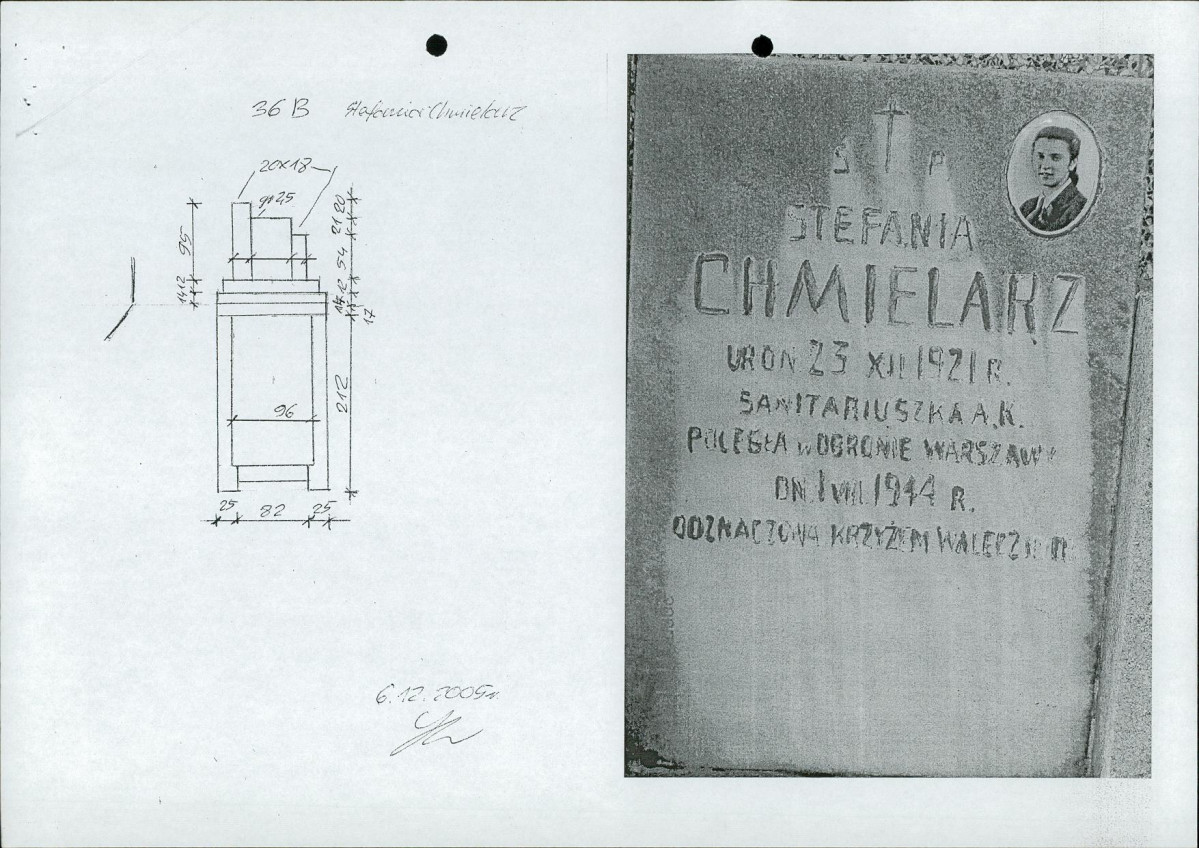 36 B Stefania Chmielarz
20x18
gr 25
95
1412
20
21
54
12
14
17
212
96
25 82 25
6.12.2005r.
S P
STEFANIA
CHMIELARZ
UROŃ 23 XII 1921 R.
SANITARIUSZKA A.K.
POLEGŁA W OBRONIE WARSZAWY
DN. 1 VIII 1944 R.
ODZNACZONA KRZYŻEM WALECZNYCH